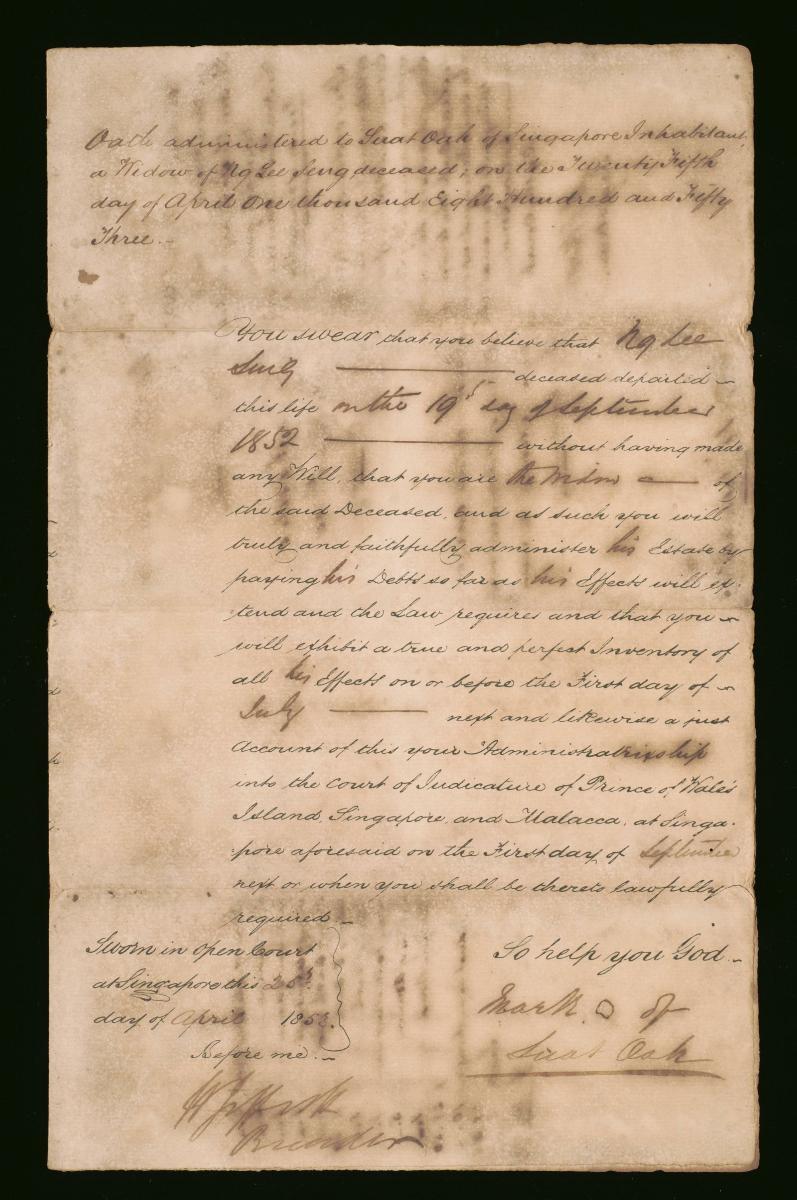 Oath administered to Suat Oak of Singapore Inhabitant,
a Widow of Ng Lee Seng deceased; on the Twenty Fifth
day of April One thousand Eight Hundred and Fifty
Three.-
You swear that you believe that Ng Lee
Seng deceased departed
this life on the 19th day of September
1852 without having made
any Will, that you are the Widow of
the said Deceased, and as such you will
truly and faithfully administer his Estate by
paying his Debts so far as his Effects will ex-
tend and the Law requires and that you
will exhibit a true and perfect Inventory of
all his Effects on or before the First day of
July next and likewise a just
Account of this your Administratrixship
into the Court of Judicature of Prince of Wales
Island, Singapore and Malacca, at Singa-
pore aforesaid on the First day of September
next or when you shall be thereto lawfully
required.-
Sworn in Open Court
at Singapore this 25th
day of April 1853.
Before me.-
So help you God.-
Mark of
Suat Oak